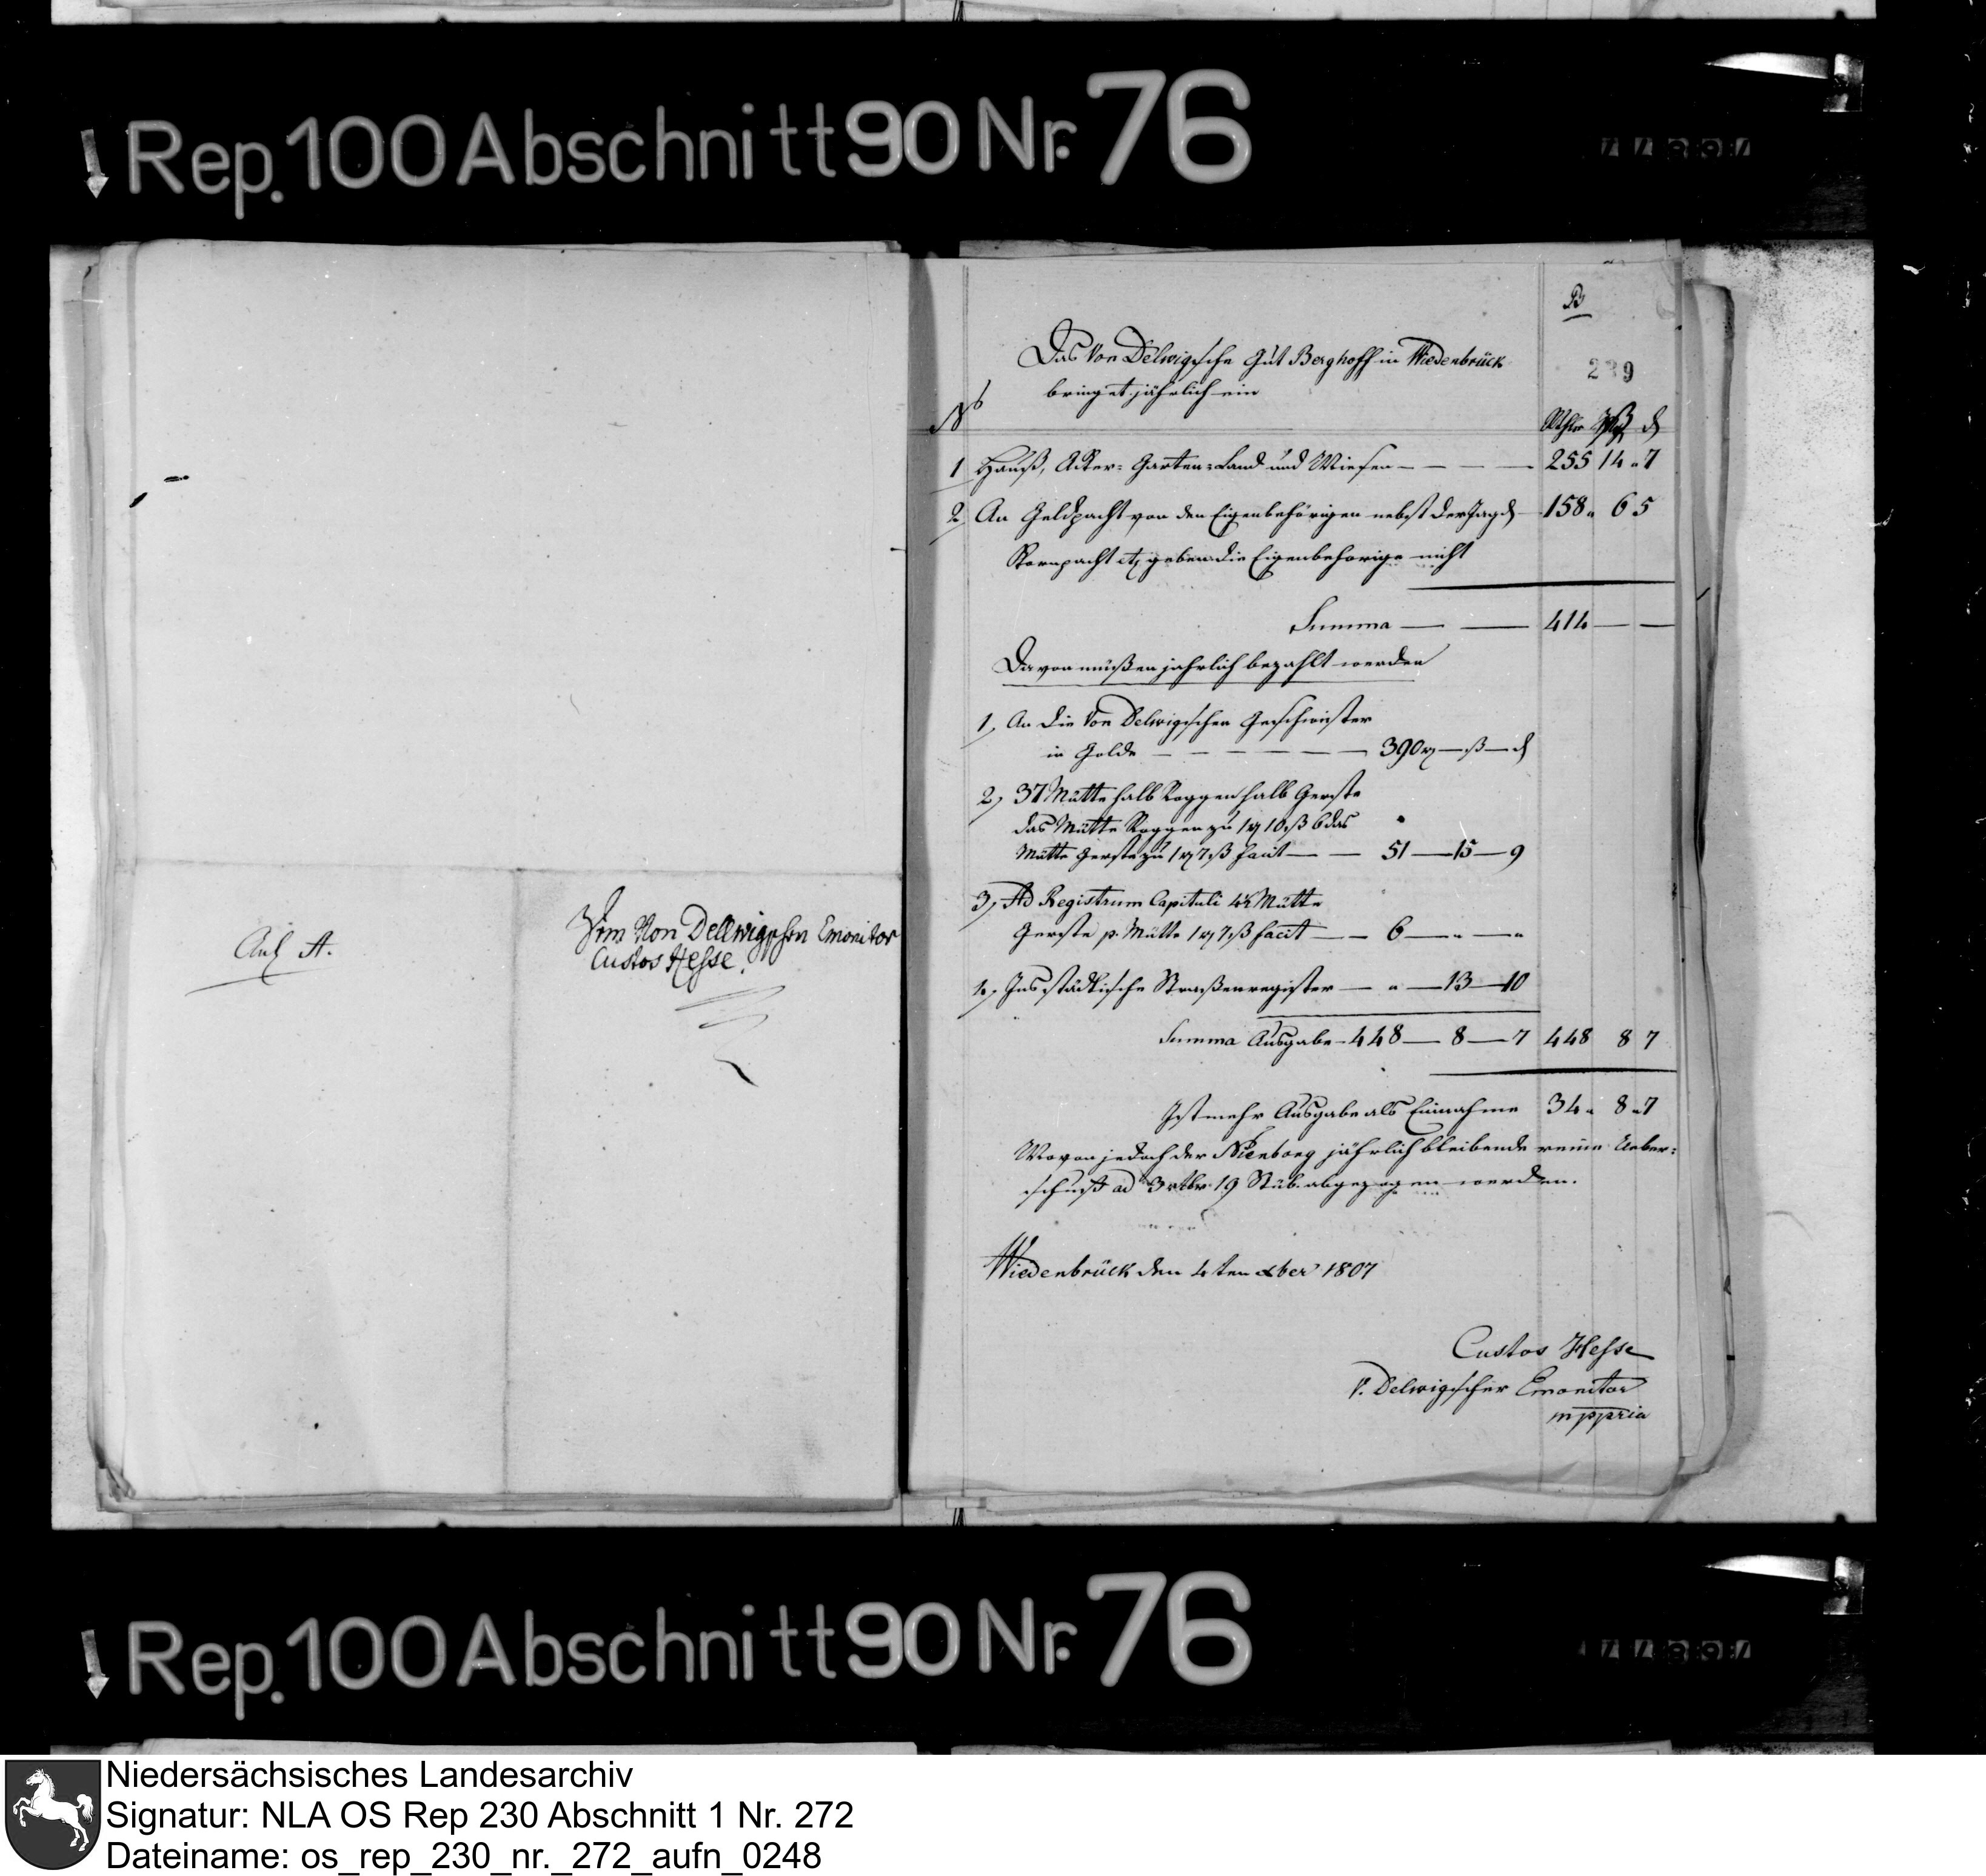 Rep. 100 Abschnitt 90 Nr. 76
Anl A.
Vom Von Dellwigschen Emonitor
Custos Hesse.
B
239
Das Von Delwigsche Gut Berghoff in Wiedenbrück
bringet jährlich ein
No
Rthlr ß d
1 Hauß, Acker= Garten=Land und Wiesen — — — — 255 14 " 7
2, An Geldpacht von den Eigenbehörigen nebst der Jagd — 158 " 6 5
Kornpacht etc geben die Eigenbehörige nicht
Summa — — 414 — —
Davon müßen jahrlich bezahlt werden
1, An die Von Delwigschen Geschwister
in Golde — — — — — 390 rt — ß — d
2, 37 Mütte halb Roggen halb Gerste
das Mütte Roggen zu 1 rt 10 ß 6 das
Mütte Gerste zu 1 rt 7 ß facit — — 51 — 15 — 9
3, Ad Registrum Capituli 4½ Mütte
Gerste p. Mütte 1 rt 7 ß facit — — 6 — " — "
4, Ins städtische Straßenregister — " — 13 — 10
Summa Ausgabe — 448 — 8 — 7 448 8 7
Ist mehr Ausgabe als Einnahme 34 " 8 " 7
Wovon jedoch der Nienborg jährlich bleibende reine Ueber=
schuß ad 3 rthlr 19 Stüb. abgezogen werden.
Wiedenbrück den 4ten xber 1807
Custos Hesse
V. Delwigscher Emonitor
mppria
Rep. 100 Abschnitt 90 Nr. 76
Niedersächsisches Landesarchiv
Signatur: NLA OS Rep 230 Abschnitt 1 Nr. 272
Dateiname: os_rep_230_nr._272_aufn_0248